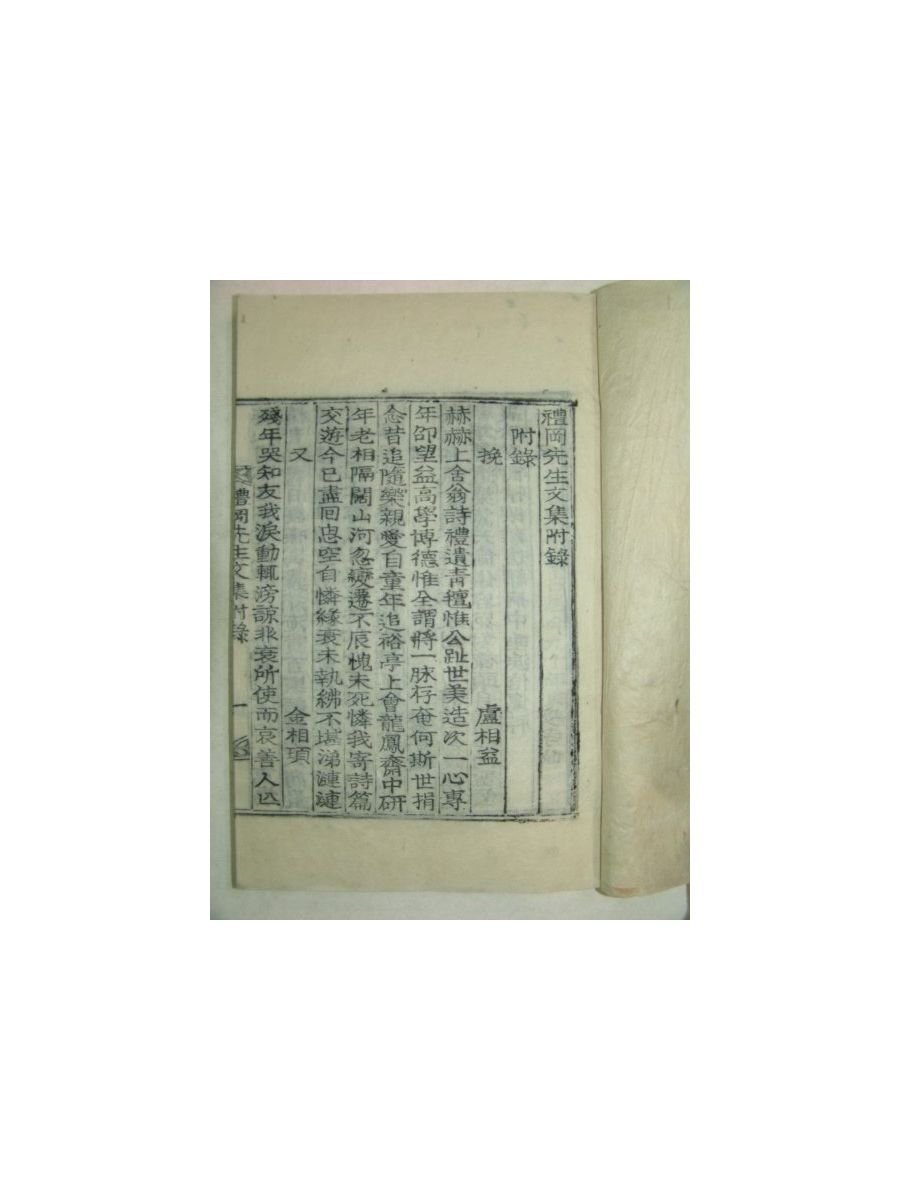 禮岡先生文集附錄
附錄
挽 盧相益
赫赫上舍翁詩禮遺青氊惟公趾世美造次一心專
年卲望益高學博德惟全謂將一脉存奄何斯世捐
念昔追隨樂親愛自童年追裕亭上會龍鳳齋中研
年老相隔闊山河忽變遷不辰愧未死憐我寄詩篇
交遊今已盡回思空自憐緣衰未執紼不堪涕漣漣
又 金相頊
殘年哭知友我淚動輒滂諒非衰所使而哀善人亾
禮岡先生文集附錄 一